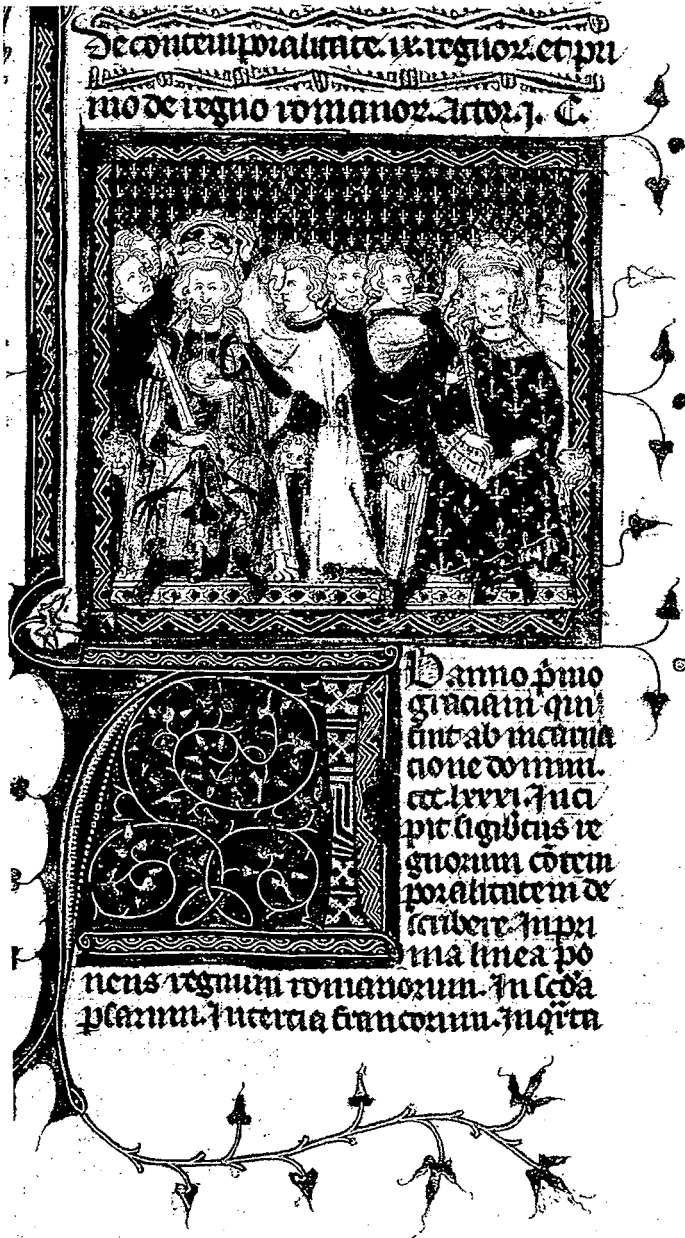 De contemporalitate .ix. regnor. et pri
mo de regno romanor. Actor. j. C.
B anno p̄mo
graciani qui
fuit ab incarna
cione domini.
ccc.lxxxi. Inci
pit sigib̄tus re
gnorum cōtem
poralitatem de
scribere. In pri
ma linea po
nens regnum romanorum. In scd̄a
psarum. In tercia francorum. In q̄rta